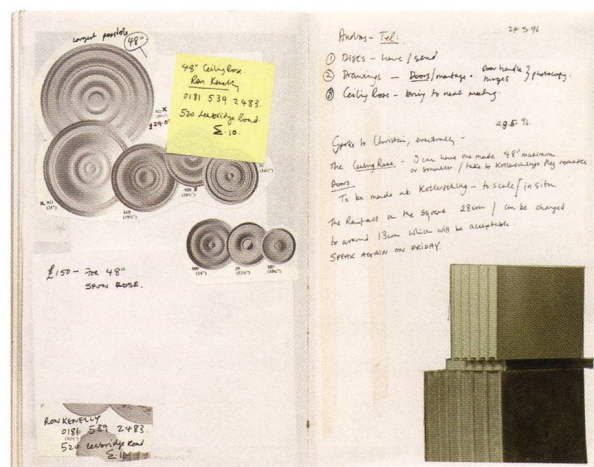 Largest possible
48"
48" Ceiling Rose.
Ron Kenelly
0181 539 2483.
520 Leabridge Road
E.10.
£29.0
X 911
(24")
(16½")
(14")
£150 - For 48"
SPUN ROSE.
RON KENELLY
0181 539 2483.
520 Leabridge Road
E.10.
Andras - Tel:
24-5-96
① DISCS - have / send
② Drawings - Doors / montage • Door handle } photocopy.
hinges
③ Ceiling Rose - bring to next meeting.
29.5.96.
Spoke to Christian, eventually -
The Ceiling Rose - I can have one made 48" maximum
or smaller / take to
Doors
To be made at - to scale / in situ
The Rainfall on the Square 28cm / can be changed
to around 13cm which will be acceptable.
SPEAK AGAIN ON FRIDAY.